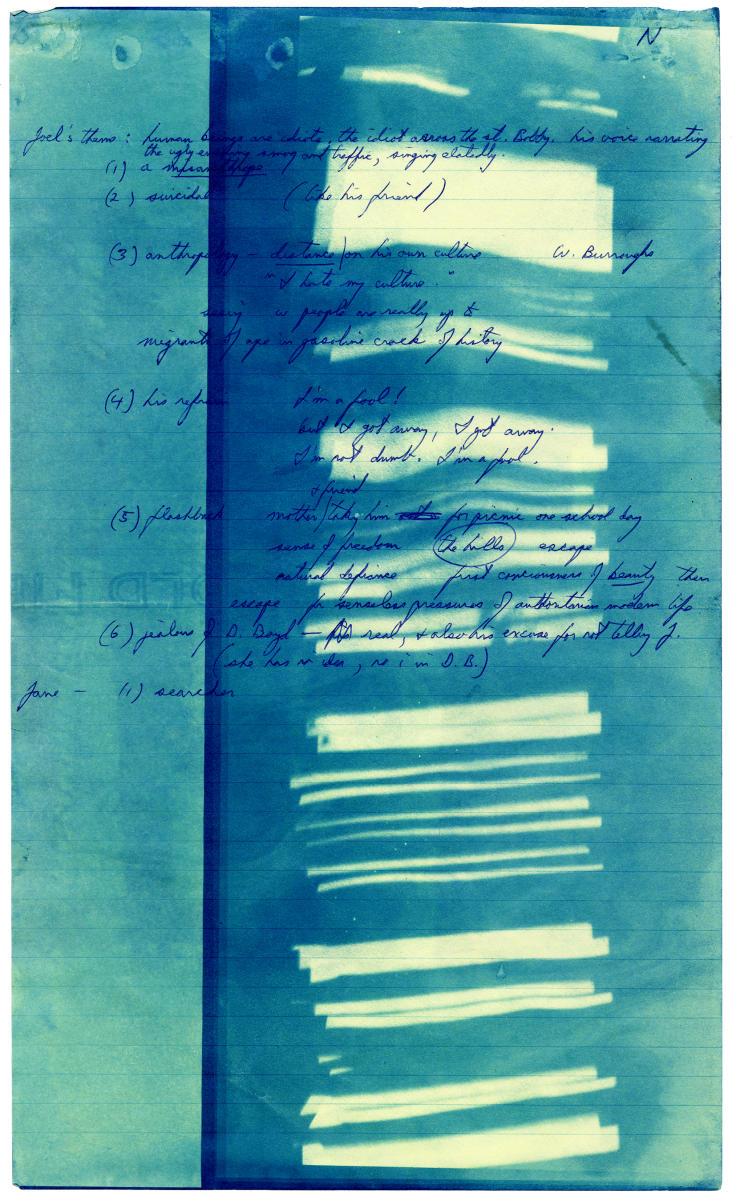 N
Joel's thems : human beings are idiots, the idiot across the st. Bobby. his voice narrating
the ugly evening smog and traffic, singing elatedly.
(1) a misanthrope
(2) suicidal (like his friend)
(3) anthropology — distance / on his own culture W. Burroughs
"I hate my culture."
seeing w people are really up to
migrants of ape in gasoline crack of history
(4) his refrain I'm a fool!
but I got away, I got away.
I'm not dumb. I'm a fool.
+ friend
(5) flashback mother / taking him for picnic one school day
sense of freedom the hills escape
natural defiance first conciousness of beauty then
escape fr senseless pressures of authoritarian modern life
(6) jealous of D. Boyd — real, + also his excuse for not telling J.
(she has n idea, no i in D.B.)
Jane — (1) searcher